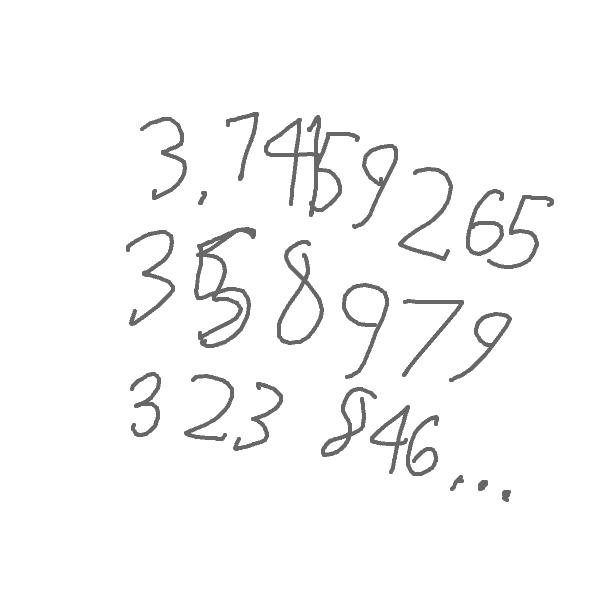 3.74159265
3558979
323 846...